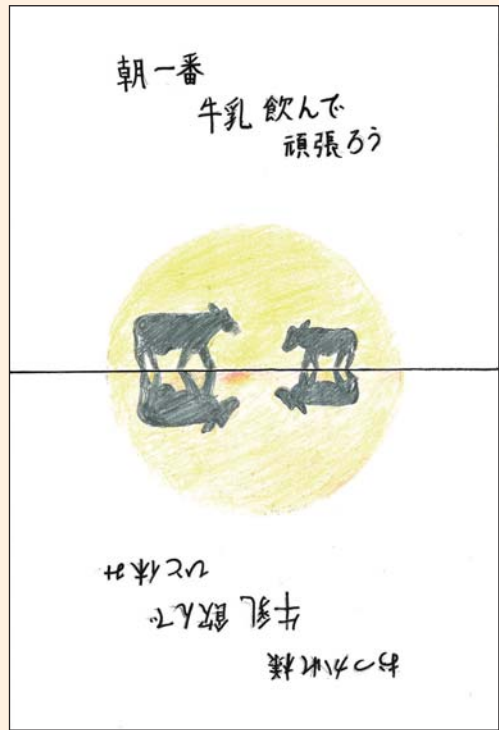 朝一番
牛乳 飲んで
頑張ろう
おつかれ様
牛乳 飲んで
ひと休み